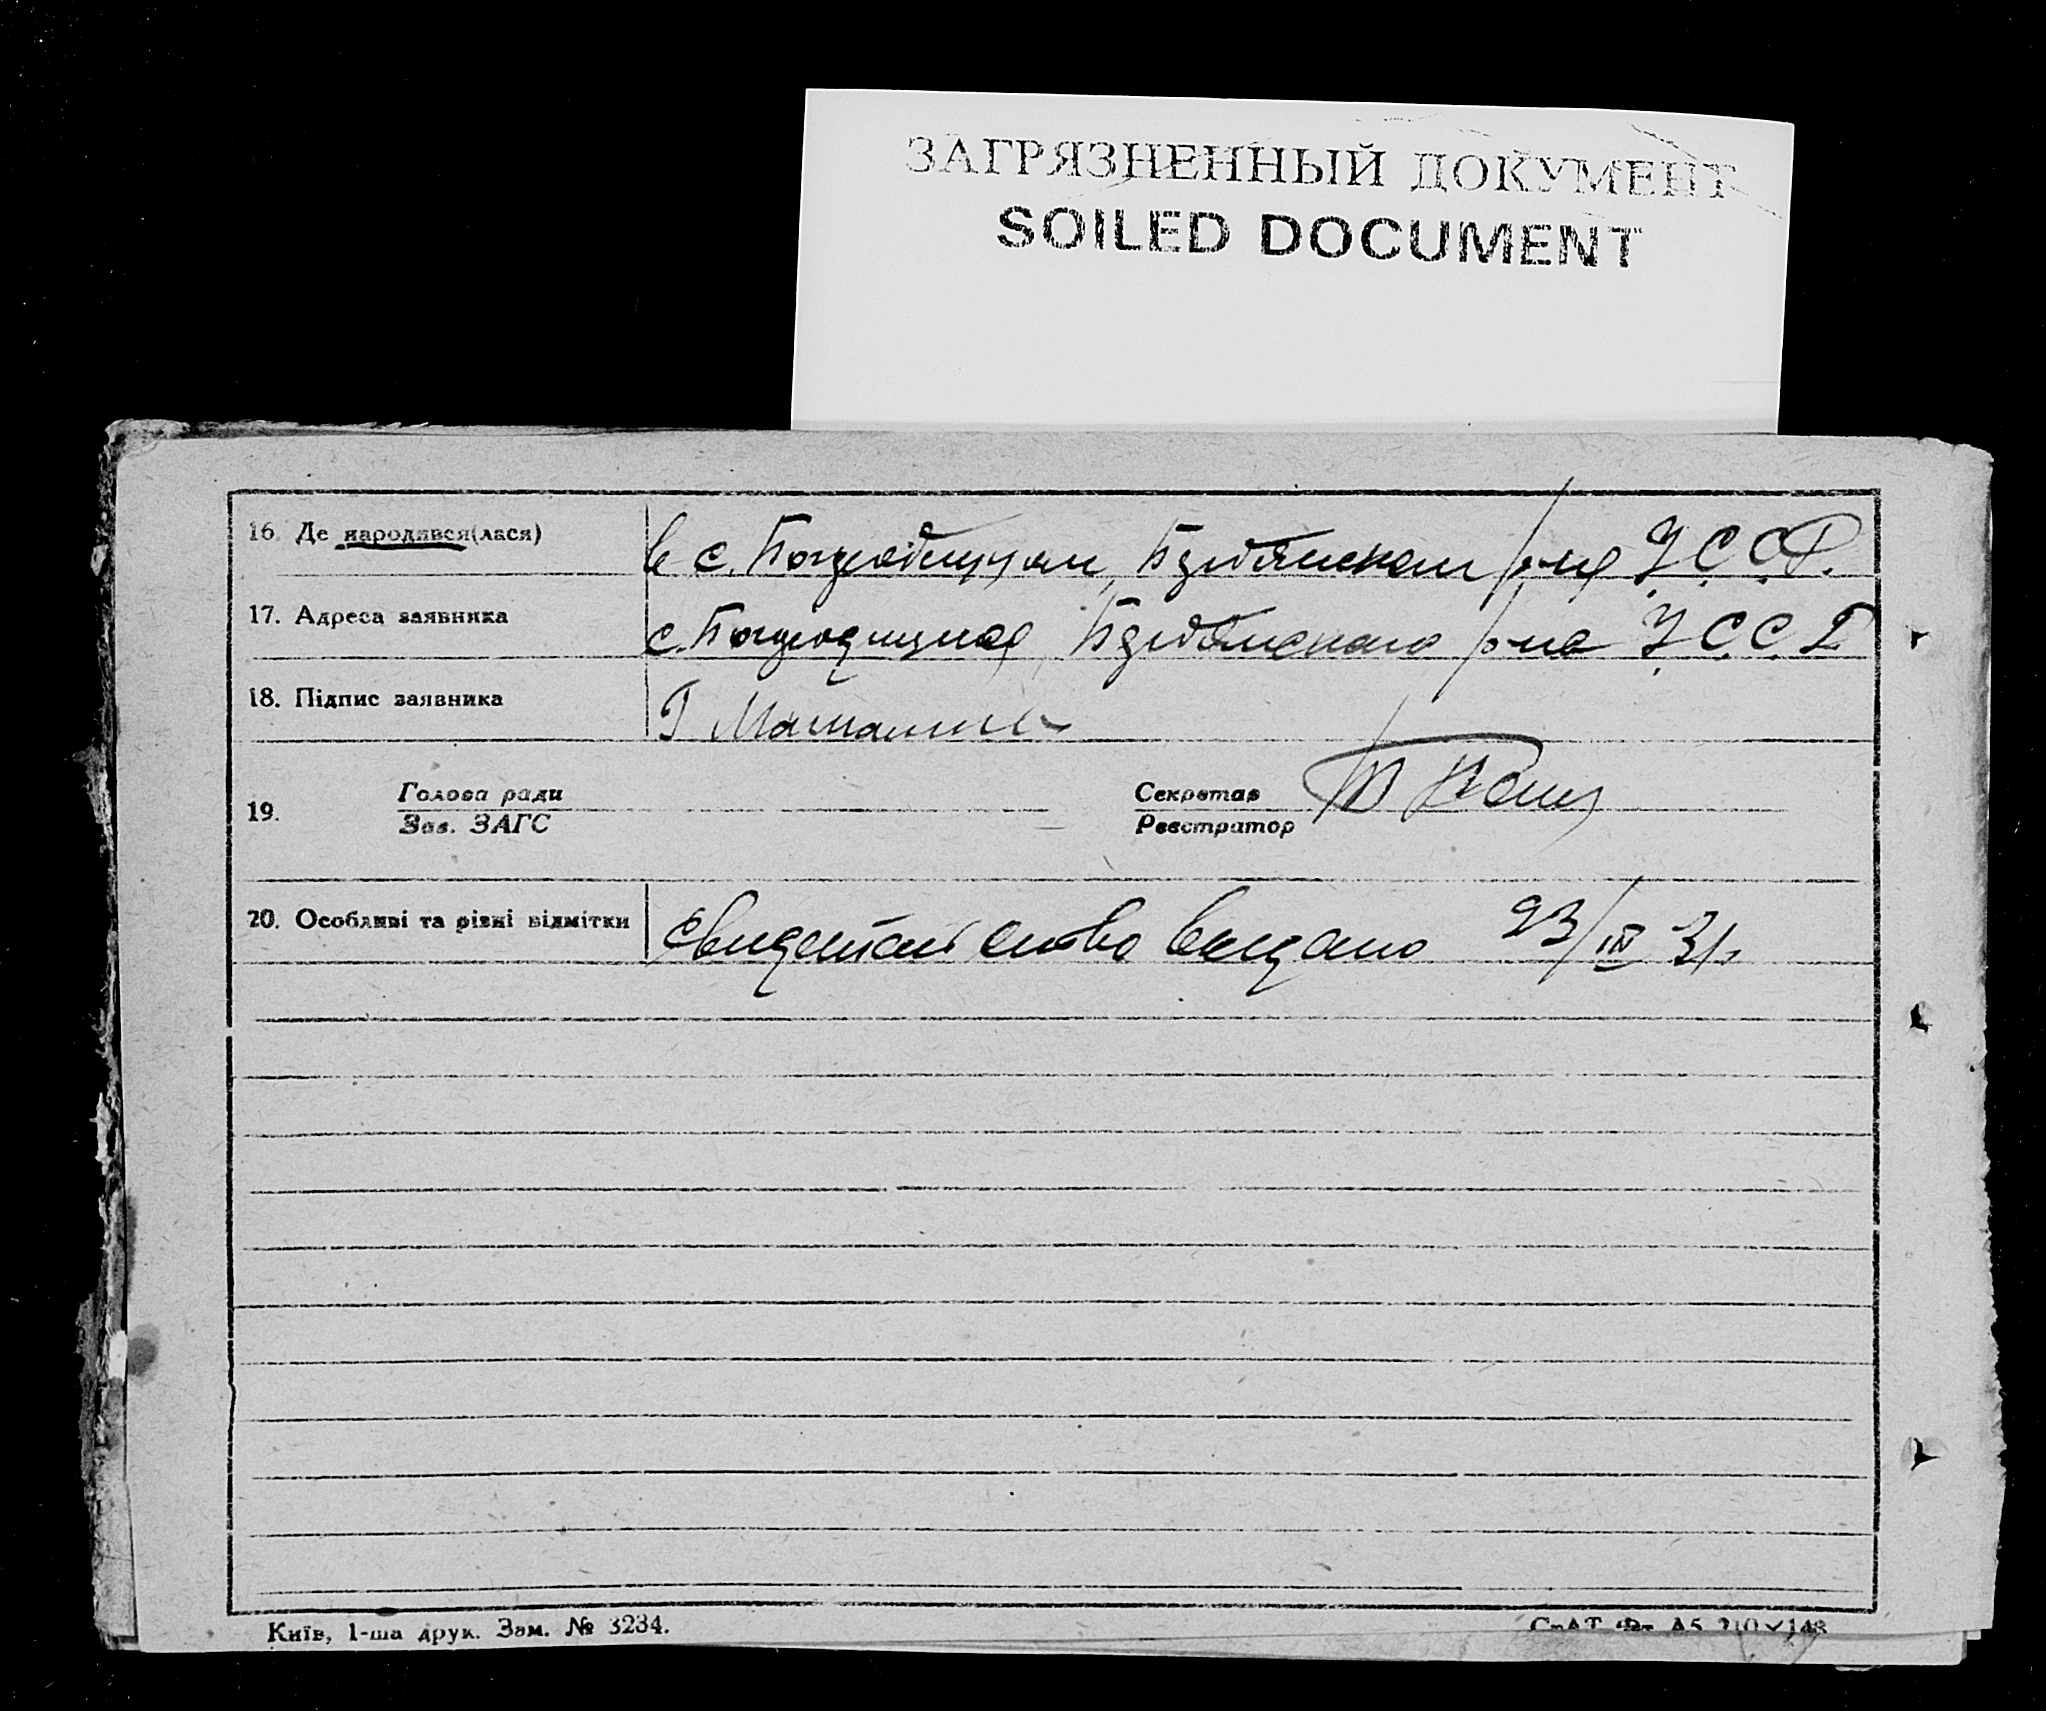 ЗАГРЯЗНЕННЫЙ ДОКУМЕНТ
SOILED DOCUMENT
16. Де народився(лася)
в с. р-на У.С.С.Р.
17. Адреса заявника
с. р-на У.С.С.Р
18. Підпис заявника
Г
19. Голова ради
Зав. ЗАГС
Секретар
Реєстратор
20. Особливі та різні відмітки
свидетельство выдано 23/IX 31.
Київ, 1-ша друк. Зам. № 3234.
А5 210×148